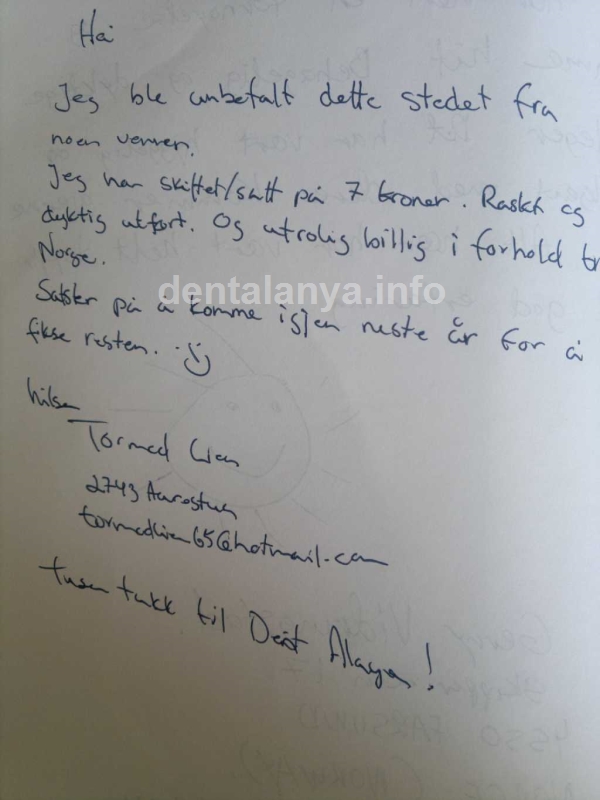 Hei
Jeg ble anbefalt dette stedet fra
noen venner.
Jeg har skiftet/satt på 7 kroner. Raskt og
dyktig utført. Og utrolig billig i forhold til
Norge.
dentalanya.info
Satser på å komme igjen neste år for å
fikse resten. :)
hilsen
Tormod Lien
2743
til Dent Alanya!
tusen takk